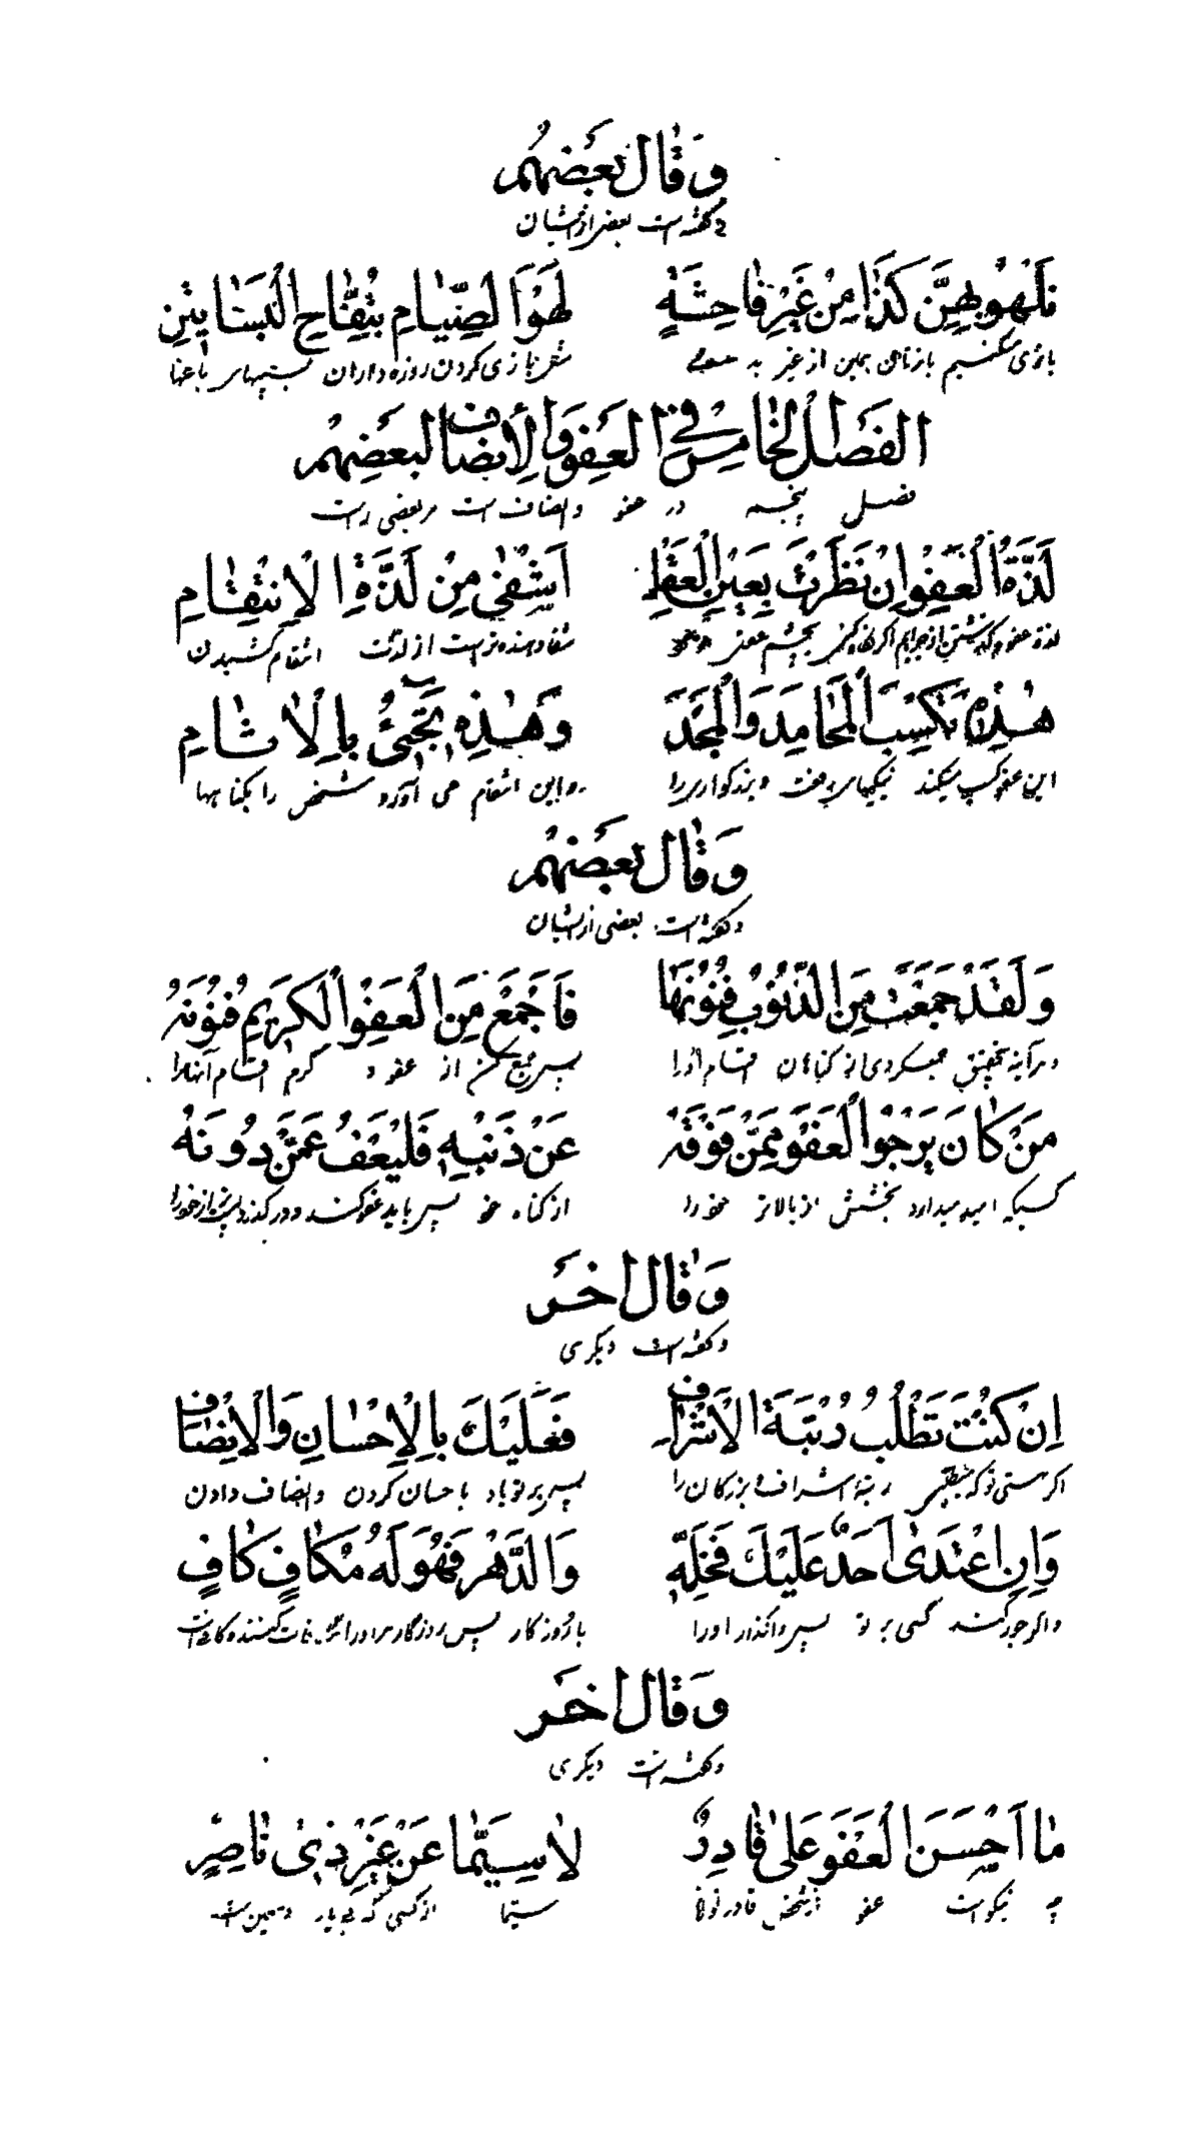 وَقَالَ بَعْضُهُمْ
و گفته است بعضی از ایشان
نَلْهُو بِهِنَّ كَذَا مِنْ غَيْرِ فَاحِشَةٍ لَهْوَ الصِّيَامِ بِتُفَّاحِ الْبَسَاتِينِ
بازی میکنیم بازنان همین از غیر بد مثل بازی کردن روزه داران بسیبهای باغها
الفَصْلُ الْخَامِسُ فِي الْعَفْوِ وَالْإِنْصَافِ لِبَعْضِهِمْ
فصل پنجم در عفو و انصاف است مر بعضی راست
لَذَّةُ الْعَفْوِ اِنْ نَظَرْتَ بِعَيْنِ الْعَقْلِ اَشْفٰى مِنْ لَذَّةِ الْاِنْتِقَامِ
لذة عفو و گذشتن از جرایم اگر نگاه کنی بچشم شفا دهنده تر است از لذت انتقام کشیدن
هٰذِهِ تَكْسِبُ الْمَحَامِدَ وَالْمَجْدَ وَهٰذِهِ تَجِيْءُ بِالْاٰثَامِ
این عفو کسب میکند نیکیهای و بزرگواری را و این انتقام می آورد شخص را بگناهها
وَقَالَ بَعْضُهُمْ
و گفته است بعضی از ایشان
وَلَقَدْ جَمَعْتَ مِنَ الذُّنُوْبِ فُنُوْنَهَا فَاجْمَعْ مِنَ الْعَفْوِ الْكَرِيْمِ فُنُوْنَهُ
و هرآینه بتحقیق جمع کردی از گناهان اقسام او را پس جمع کن از عفو و کرم اقسام آنها را
مَنْ كَانَ يَرْجُو الْعَفْوَ مِمَّنْ فَوْقَهُ عَنْ ذَنْبِهِ فَلْيَعْفُ عَمَّنْ دُوْنَهُ
کسیکه امید میدارد بخشش از بالاتر خود را از گناه خود پس باید عفو کند و درگذرد از خود را
وَقَالَ اٰخَر
و گفته است دیگری
اِنْ كُنْتَ تَطْلُبُ رُتْبَةَ الْاَشْرَافِ فَعَلَيْكَ بِالْاِحْسَانِ وَالْاِنْصَافِ
اگر هستی تو که رتبهٔ اشراف و بزرگان را پس بر تو باد باحسان کردن و انصاف دادن
وَاِنِ اعْتَدٰى اَحَدٌ عَلَيْكَ فَخَلِّهِ وَالدَّهْرَ فَهُوَ لَهُ مُكَافٍ كَافٍ
و اگر جور کند کسی بر تو پس واگذار او را با روزگار پس روزگار مر او را کننده
وَقَالَ اٰخَر
و گفته است دیگری
مَا اَحْسَنَ الْعَفْوَ عَلٰى قَادِرٍ لَا سِيَّمَا عَنْ غَيْرِ ذِيْ نَاصِرٍ
چه نیکو است عفو از شخص قادر توانا سیما از کسی که بی یار و معین است